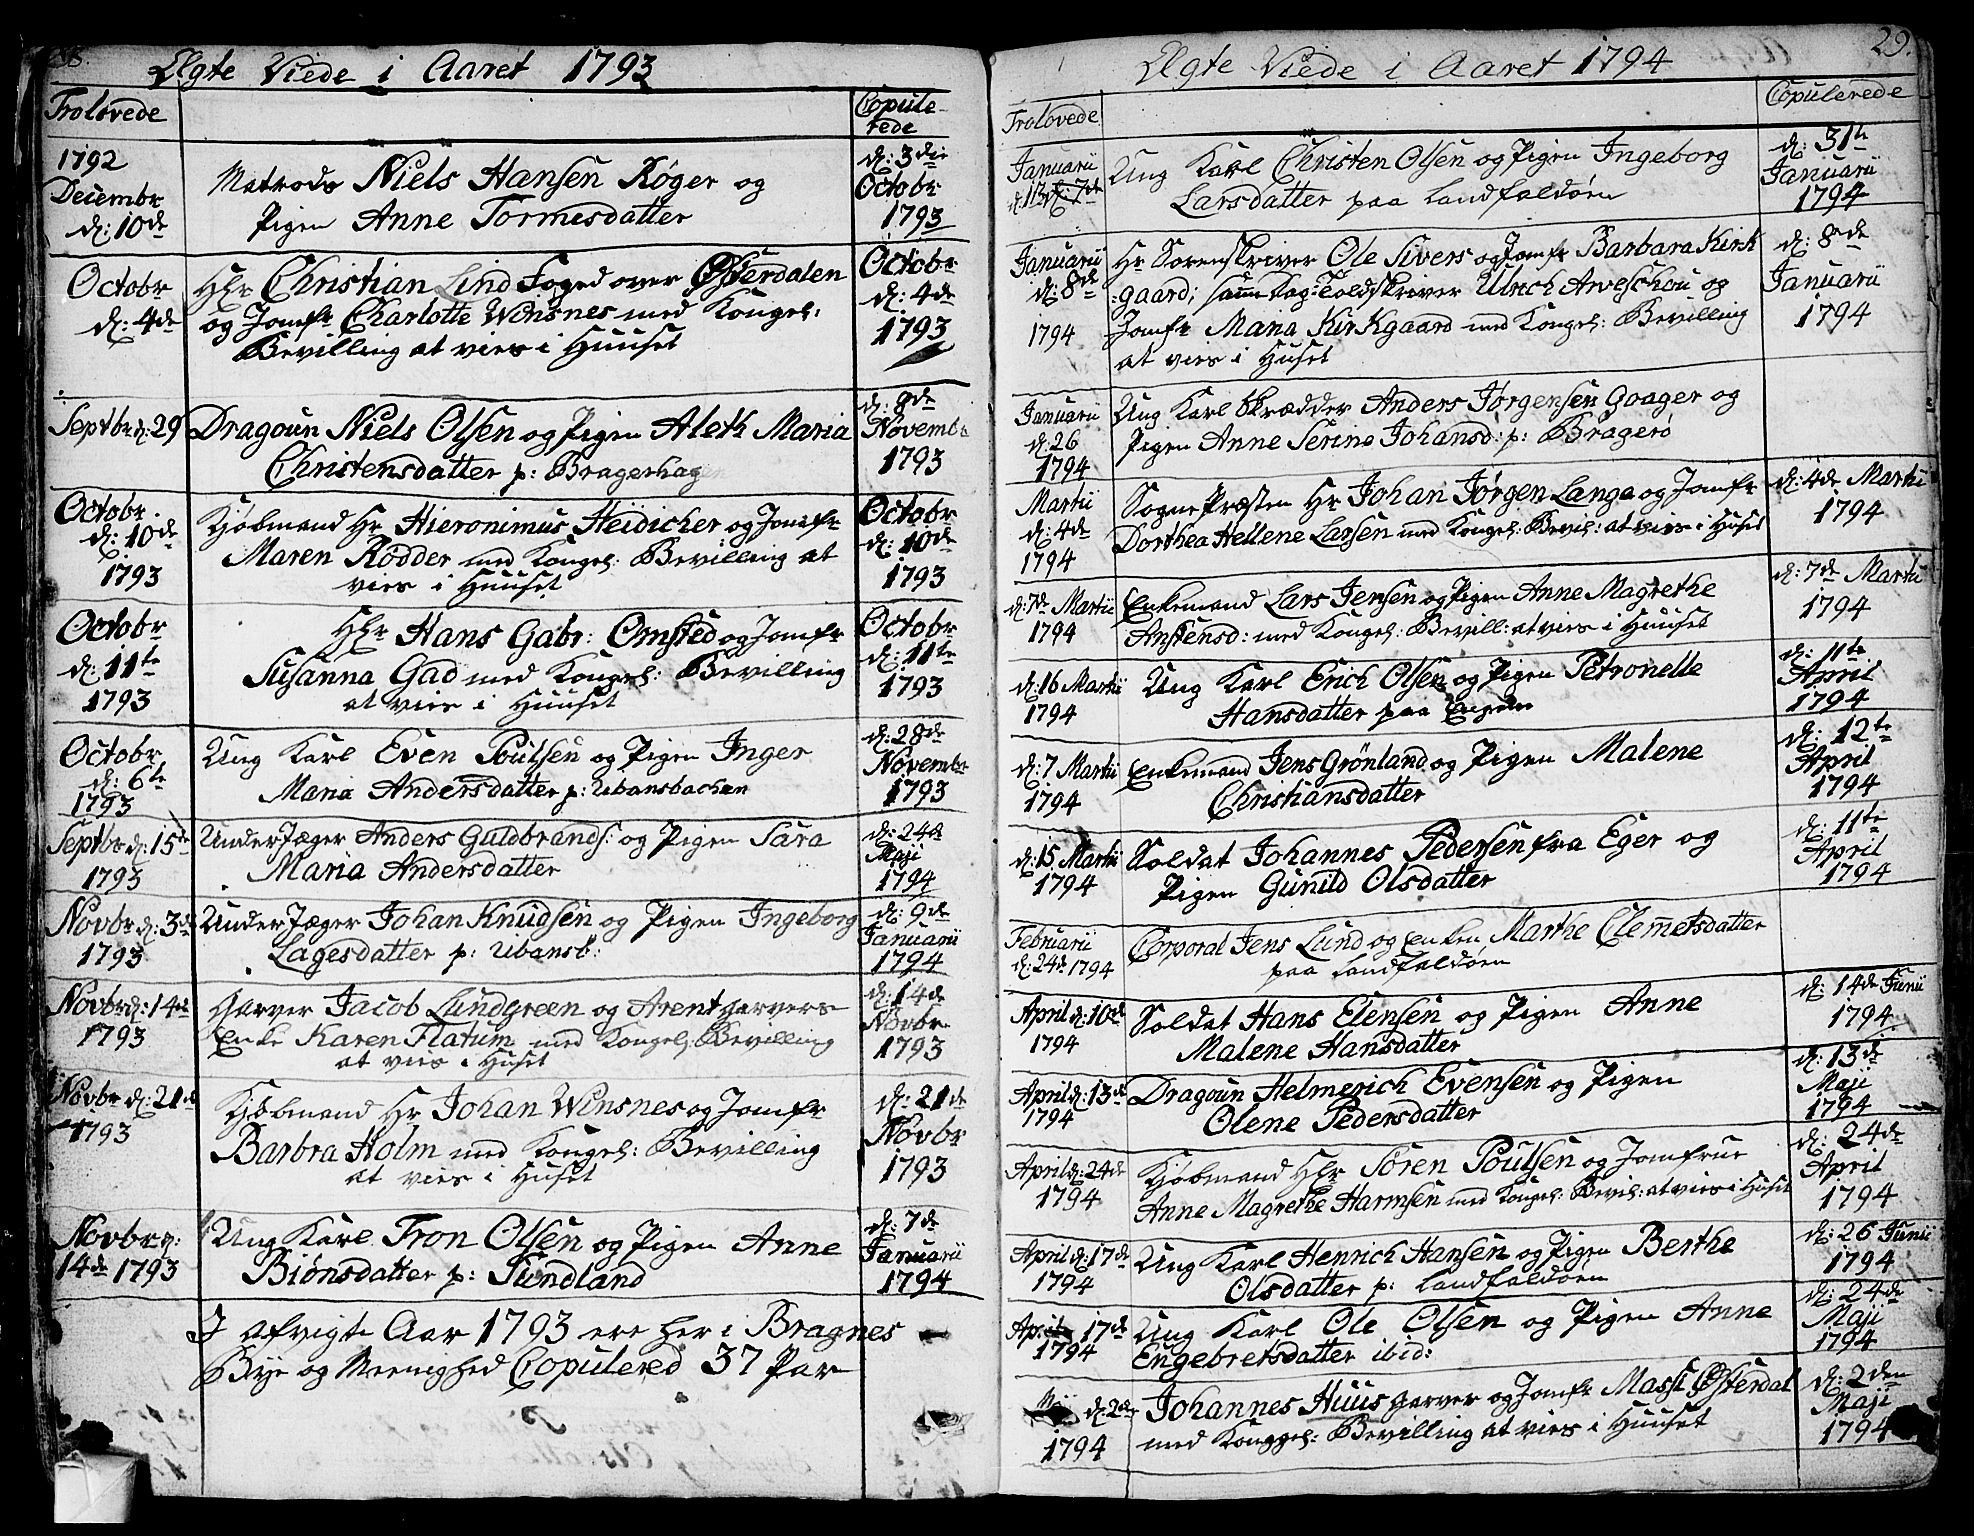 28.
Ægte Viede i Aaret 1793
Trolovede
Copule-
rede
1792
Decembr
d: 10de
Matrods Niels Hansen Røger og
Pigen Anne Tormesdatter
d: 3die
Octobr
1793
Octobr
d: 4de
Hlr Christian Lind Foged over Østerdalen
og Jomfr Charlotte Winsnes med Kongel:
Bevilling at vies i Huuset
Octobr
d: 4de
1793
Septbr d: 29
Dragoun Niels Olsen og Pigen Aleth Maria
Christensdatter p: Bragerhagen
d: 8de
Novemb:
1793
Octobr.
d: 10de
1793
Kjøbmand Hr Hieronimus Heidicher og Jomfr
Maren Rødder med Kongel: Bevilling at
vies i Huuset
Octobr
d: 10de
1793
Octobr
d: 11te
1793
Hlr Hans Gabr: Omsted og Jomfr
Susanna Gad med Kongel: Bevilling
at vies i Huuset
Octobr
d: 11te
1793
Octobr
d: 6te
1793
Ung Karl Even Poulsen og Pigen Inger
Maria Andersdatter p: Ubansbachen
d: 28de
Novembr
1793
Septbr d: 15de
1793
Under Jæger Anders Guldbrands: og Pigen Sara
Maria Andersdatter
d: 24de
Maji
1794
Novbr d: 3de
1793
Under Jæger Johan Knudsen og Pigen Ingeborg
Lagesdatter p: Ubansb:
d: 9de
Januarii
1794
Novbr d: 14de
1793
Garver Jacob Lundgreen og Arent Garvers
Enke Karen Flatum med Kongel: Bevilling
at vies i Huset
d: 14de
Novbr
1793
Novbr d: 21de
1793
Kjøbmand Hr Johan Winsnes og Jomfr
Barbra Holm med Kongel: Bevilling
at vies i Huset
d: 21de
Novbr
1793
Novbr d:
14de 1793
Ung Karl Tron Olsen og Pigen Anne
Biönsdatter p: Sundland
d: 7de
Januarii
1794
I afvigte Aar 1793 ere her i Bragnes
Bye og Meenighed Copulered 37 Par
29.
Ægte Viede i Aaret 1794
Trolovede
Copulerede
Januarii
d: 13
Ung Karl Christen Olsen og Pigen Ingeborg
Larsdatter paa Landfaldøen
d: 31te
Januarii
1794
Januarii
d: 8de
1794
Hr Sorenskriver Ole Sivers og Jomfr Barbara Kirk
gaard; samt Kag: Toldskriver Ulrich Arveschou og
Jomfr Maria Kirkgaard med Kongel: Bevilling
at vies i Huset
d: 8de
Januarii
1794
Januarii
d: 26
1794
Ung Karl Skrædder Anders Jørgensen Goager og
Pigen Anne Serine Johansd: p: Bragerö
Martii
d: 4de
1794
Sogne Præsten Hr Johan Jørgen Lange og Jomfr
Dorthea Hellene Larsen med Kongel: Bevil: at vies i Huset
d: 4de Martii
1794
d: 7de Martii
1794
Enkemand Lars Jensen og Pigen Anne Magrethe
Anstensd: med Kongel: Bevill: at vies i Huuset
d: 7de Martii
1794
d: 16 Martii
1794
Ung Karl Erich Olsen og Pigen Petronelle
Hansdatter paa Engene
d: 11te
April
1794
d: 7 Martii
1794
Enkemand Jens Grönland og Pigen Malene
Christiansdatter
d: 12te
April
1794
d: 15 Martii
1794
Soldat Johannes Pedersen fra Eger og
Pigen Gunild Olsdatter
d: 11te
April
1794
Februarii
d: 24de 1794
Corporal Jens Lund og Enken Marthe Clemetsdatter
paa Landfaldøen
April d: 10de
1794
Soldat Hans Elensen og Pigen Anne
Malene Hansdatter
d: 14de Junii
1794
April d: 13de
1794
Dragoun Helmerich Evensen og Pigen
Olene Pedersdatter
d: 13de
Maji
1794
April d: 24de
1794
Kjøbmand Hlr Søren Poulsen og Jomfrue
Anne Magrethe Harmsen med Kongel: Bevil: at vies i Huset
d: 24de
April
1794
April d: 17de
1794
Ung Karl Henrich Hansen og Pigen Berthe
Olsdatter p: Landfaldøen
d: 26 Junii
1794
April 17de
1794
Ung Karl Ole Olsen og Pigen Anne
Engebretsdatter ibid:
d: 24de
Maji
1794
d: 2de
1794
Johannes Huus Garver og Jomfr Massi Østerdal
med Konggel: Bevilling at vies i Huuset
d: 2den
Maji
1794